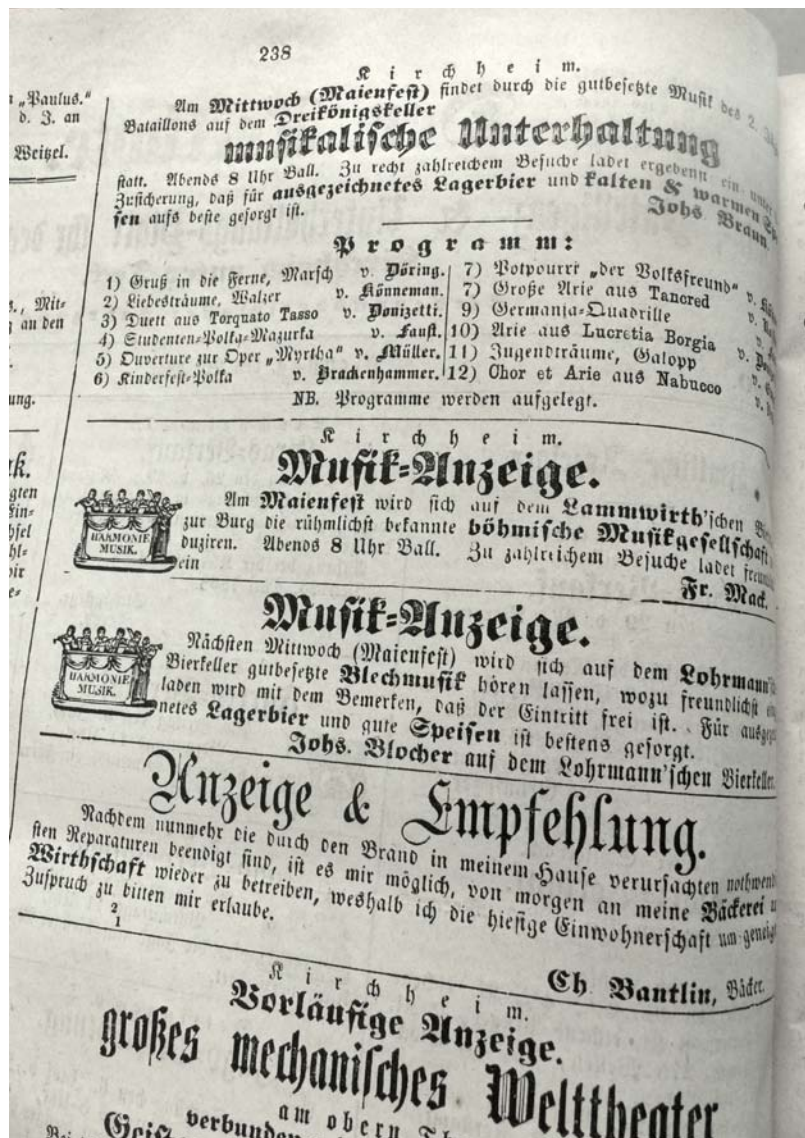 238
„Paulus."
d. J. an
Weitzel.
., Mit-
an den
ung.
k.
gten
Ein-
hl-
K i r c h h e i m.
Am Mittwoch (Maienfest) findet durch die gutbesetzte Musik des 2.
Bataillons auf dem Dreikönigskeller
musikalische Unterhaltung
statt. Abends 8 Uhr Ball. Zu recht zahlreichem Besuche ladet ergebenst ein unter
Zusicherung, daß für ausgezeichnetes Lagerbier und kalten & warmen Spei-
sen aufs beste gesorgt ist.
Johs Braun
P r o g r a m m :
1) Gruß in die Ferne, Marsch v. Döring.
2) Liebesträume, Walzer v. Könneman.
3) Duett aus Torquato Tasso v. Donizetti.
4) Studenten-Polka-Mazurka v. Faust.
5) Ouverture zur Oper „Myrtha" v. Müller.
6) Kinderfest-Polka v. Brackenhammer.
7) Potpourri „der Volksfreund" v.
7) Große Arie aus Tancred v.
9) Germania-Quadrille v.
10) Arie aus Lucretia Borgia v.
11) Jugendträume, Galopp v.
12) Chor et Arie aus Nabucco v.
NB. Programme werden aufgelegt.
K i r c h h e i m.
Musik-Anzeige.
HARMONIE
MUSIK.
Am Maienfest wird sich auf dem Lammwirth'schen
zur Burg die rühmlichst bekannte böhmische Musikgesellschaft
duziren. Abends 8 Uhr Ball. Zu zahlreichem Besuche ladet
ein
Fr. Mack.
Musik-Anzeige.
HARMONIE
MUSIK.
Nächsten Mittwoch (Maienfest) wird sich auf dem Lohrmann'
Bierkeller gutbesetzte Blechmusik hören lassen, wozu freundlichst
laden wird mit dem Bemerken, daß der Eintritt frei ist. Für
netes Lagerbier und gute Speisen ist bestens gesorgt.
Johs. Blocher auf dem Lohrmann'schen Bierkeller.
Anzeige & Empfehlung.
Nachdem nunmehr die durch den Brand in meinem Hause verursachten nothwend
sten Reparaturen beendigt sind, ist es mir möglich, von morgen an meine Bäckerei
Wirthschaft wieder zu betreiben, weshalb ich die hiesige Einwohnerschaft um geneigt
Zuspruch zu bitten mir erlaube.
2
1
Ch. Bantlin, Bäcker.
K i r c h h e i m.
Vorläufige Anzeige.
großes mechanisches Welttheater
am obern
verbunden